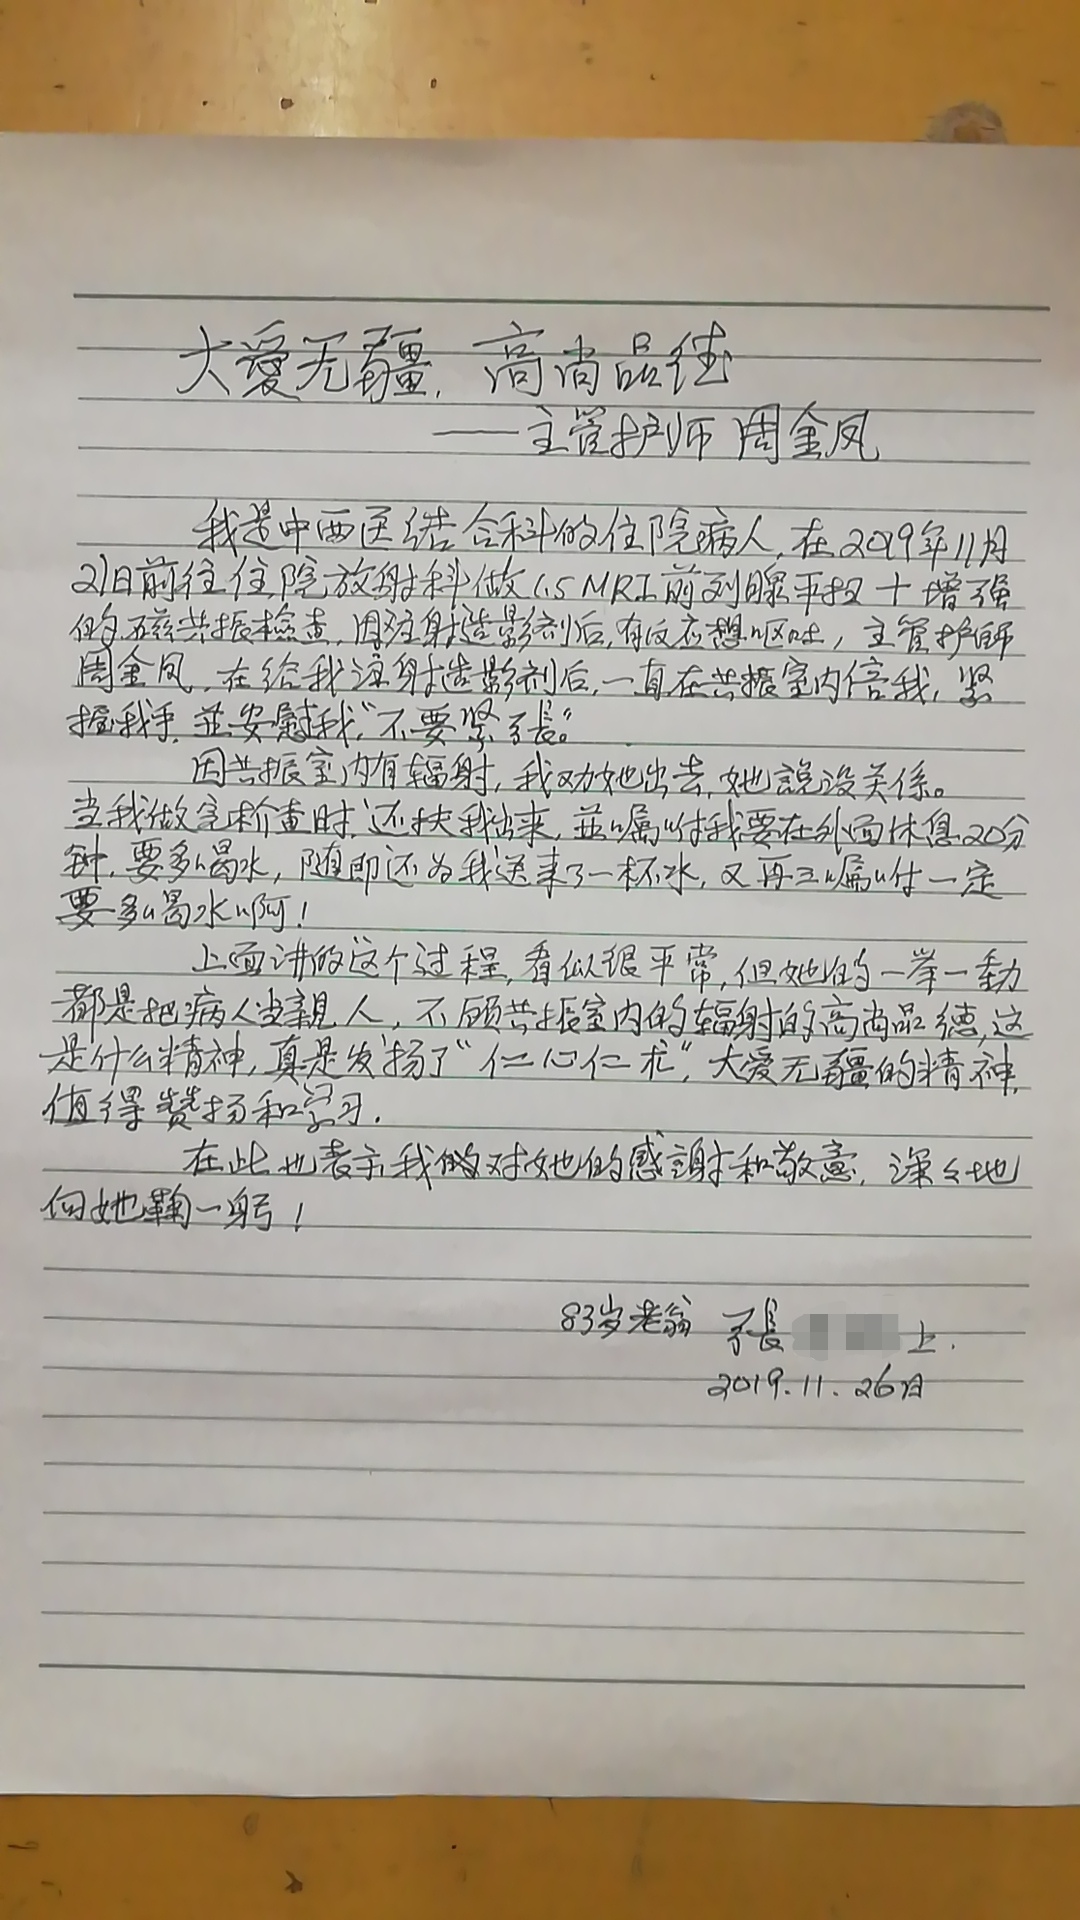 大爱无疆，高尚品德
——主管护师 周金凤
我是中西医结合科的住院病人，在2019年11月
21日前往住院放射科做1.5MRI前列腺平扫+增强
的磁共振检查，因注射造影剂后，有反应想呕吐，主管护师
周金凤，在给我注射造影剂后，一直在共振室内倍我，紧
握我手，並安慰我，“不要紧張。”
因共振室内有辐射，我劝她出去，她説没关係。
当我做完检查时，还扶我出来，並嘱咐我要在外面休息20分
钟，要多喝水，随即还为我送来了一杯水，又再三嘱咐一定
要多喝水啊！
上面讲的这个过程，看似很平常，但她的一举一動
都是把病人当親人，不顾共振室内的辐射的高尚品德，这
是什么精神，真是发扬了“仁心仁术”，大爱无疆的精神，
值得赞扬和学习.
在此也表示我的对她的感謝和敬意，深々地
向她鞠一躬！
83岁老翁 張 上.
2019.11.26日